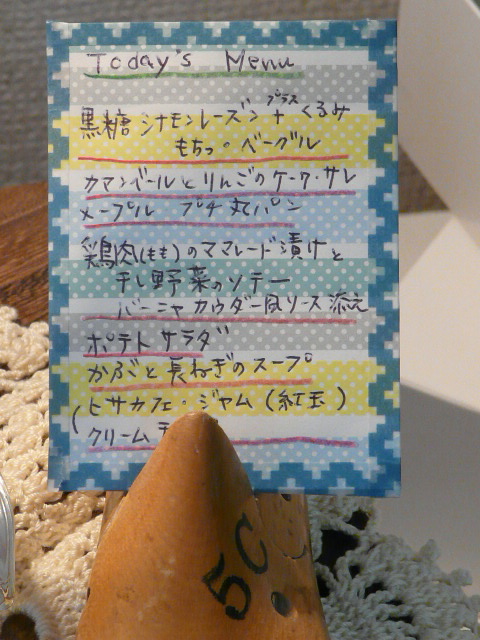 Today's Menu
黒糖 シナモンレーズン + プラス くるみ
もちっ・ベーグル
カマンベールとりんごのケーク・サレ
メープル プチ丸パン
鶏肉(もも)のママレード漬けと
干し野菜のソテー
バーニャカウダー風ソース添え
ポテトサラダ
かぶと長ねぎのスープ
(ヒサカフェ・ジャム (紅玉)
クリーム
5C